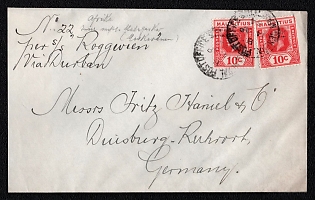 Nº 22
Afrika
per s/s Roggeveen
Via Durban
MAURITIUS MAURITIUS
10c 10c
Messrs Fritz Haniel & Cº
Duisburg-Ruhrort,
Germany.